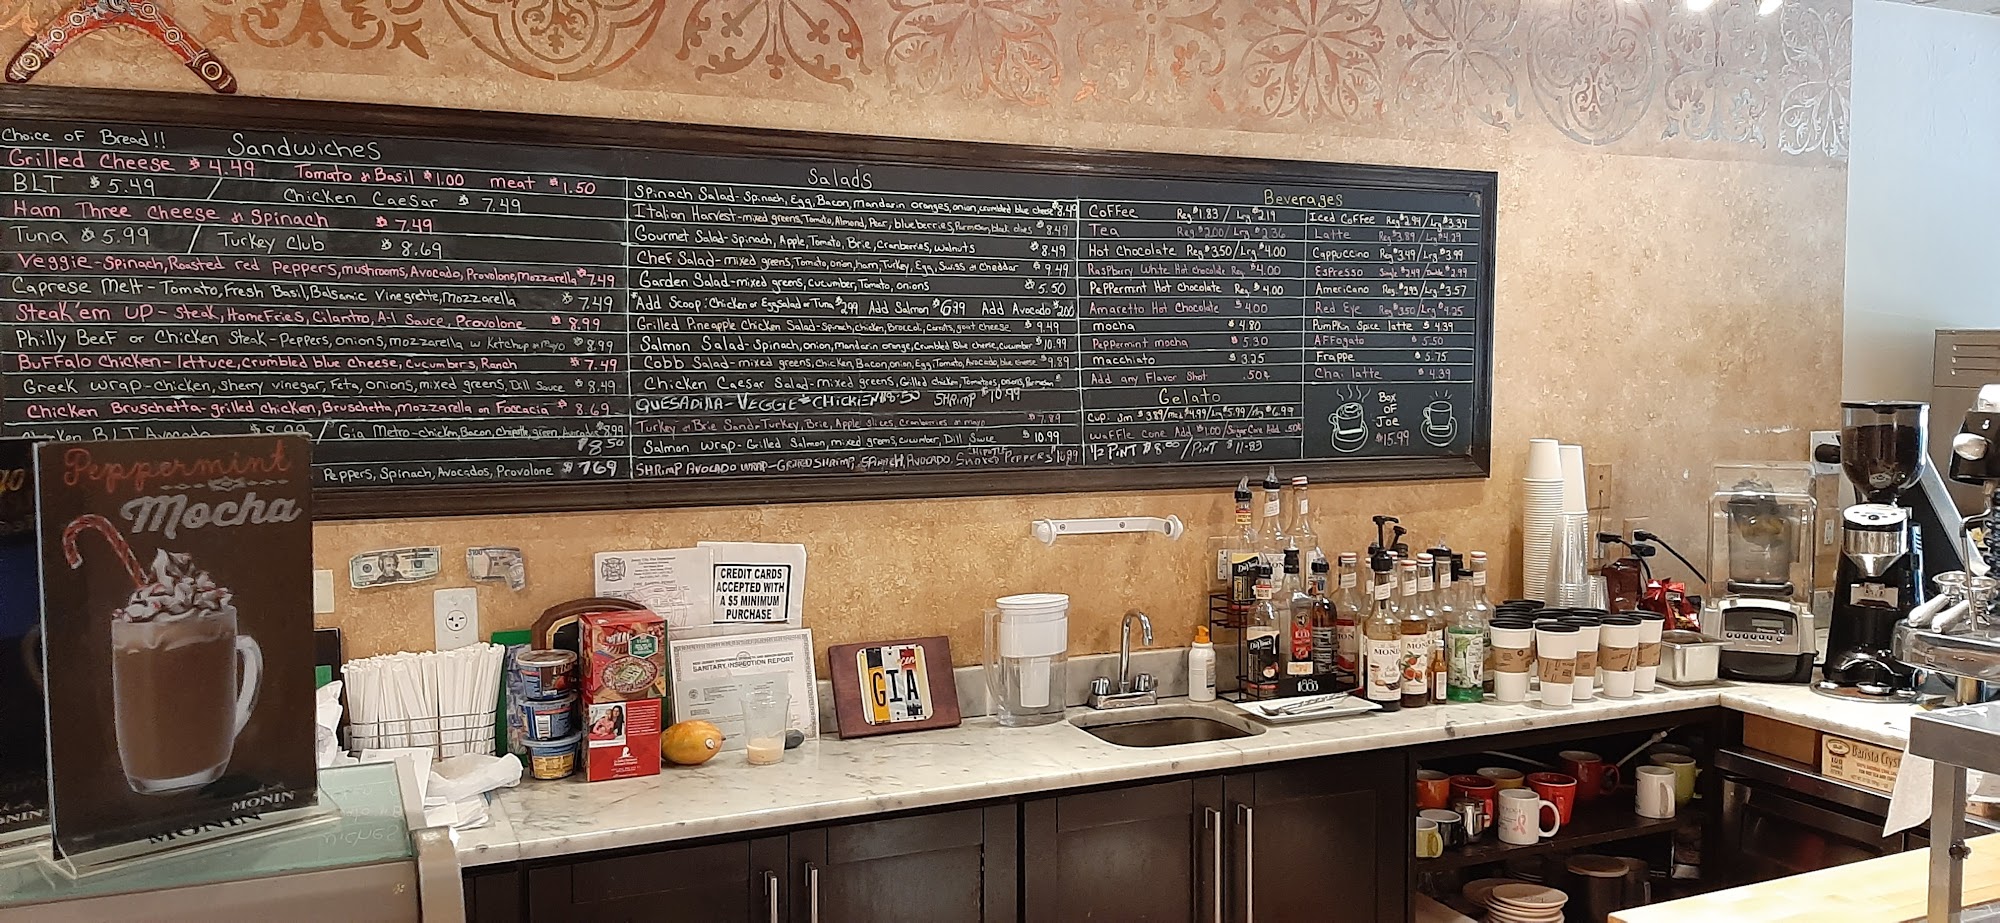 Choice of Bread!!
Sandwiches
Grilled Cheese $4.49 Tomato & Basil $1.00 meat $1.50
BLT $5.49 / Chicken Caesar $7.49
Ham Three Cheese & Spinach $7.49
Tuna $5.99 / Turkey Club $8.69
Veggie-Spinach, Roasted red Peppers, mushrooms, Avocado, Provolone, Mozzarella $7.49
Caprese Melt-Tomato, Fresh Basil, Balsamic Vinegrette, Mozzarella $7.49
Steak'em UP-Steak, HomeFries, Cilantro, A-1 Sauce, Provolone $8.99
Philly Beef or Chicken Steak-Peppers, onions, mozzarella w Ketchup or Mayo $8.99
Buffalo Chicken-lettuce, Crumbled blue Cheese, Cucumbers, Ranch $7.49
Greek Wrap-chicken, sherry vinegar, Feta, onions, mixed greens, Dill Sauce $8.49
Chicken Bruschetta-grilled chicken, Bruschetta, Mozzarella on Foccacia $8.69
BLT Avocado $8.99 / Gia Metro-chicken, Bacon, Chipotle, green, Avocado $8.99
$8.50
Peppers, Spinach, Avocados, Provolone $7.69
Salads
Spinach Salad-Spinach, Egg, Bacon, mandarin oranges, onion, crumbled blue cheese $8.49
Italian Harvest-mixed greens, Tomato, Almond, Pear, blueberries, Parmesan, black olives $8.49
Gourmet Salad-Spinach, Apple, Tomato, Brie, Cranberries, walnuts $8.49
Chef Salad-mixed greens, Tomato, onion, ham, Turkey, Egg, Swiss or Cheddar $9.49
Garden Salad-mixed greens, cucumber, Tomato, onions $5.50
*Add Scoop: Chicken or Egg Salad or Tuna $2.99 Add Salmon $6.99 Add Avocado $2.00
Grilled Pineapple Chicken Salad-Spinach, chicken, Broccoli, Carrots, goat cheese $9.49
Salmon Salad-Spinach, onion, Mandarin orange, Crumbled Blue cheese, cucumber $10.99
Cobb Salad-mixed greens, Chicken, Bacon, onion, Egg, Tomato, Avocado, blue cheese $9.89
Chicken Caesar Salad-mixed greens, Grilled chicken, Tomatoes, onions, Parmesan $
QUESADILLA-VEGGIE CHICKEN $8.50 SHRIMP $10.99
Turkey & Brie Sand-Turkey, Brie, Apple slices, cranberries or mayo $7.89
Salmon Wrap-Grilled Salmon, mixed greens, cucumber, Dill Sauce $10.99
SHRIMP AVOCADO WRAP-GRILLED SHRIMP, SPINACH, AVOCADO, CHIPOTLE SMOKED PEPPERS $10.99
Beverages
Coffee Reg $1.83 / Lrg $2.19
Tea Reg $2.00 / Lrg $2.36
Hot Chocolate Reg $3.50 / Lrg $4.00
Raspberry White Hot Chocolate Reg $4.00
Peppermint Hot Chocolate Reg. $4.00
Amaretto Hot Chocolate $4.00
mocha $4.80
Peppermint mocha $5.30
macchiato $3.25
Add any Flavor Shot .50¢
Iced Coffee Reg $2.94 / Lrg $3.34
Latte Reg $3.89 / Lrg $4.29
Cappuccino Reg $3.49 / Lrg $3.99
Espresso Single $2.49 / Double $2.99
Americano Reg. $2.93 / Lrg. $3.57
Red Eye Reg $3.50 / Lrg $4.25
Pumpkin Spice latte $4.39
Affogato $5.50
Frappe $5.75
Chai latte $4.39
Gelato
Cup: Sm $3.89 / med $4.99 / Lrg $5.99 / $6.99
Waffle Cone Add $1.00 / Sugar Cone Add .50¢
1/2 PINT $8.00 / PINT $11.83
BOX
OF
Joe
$15.99
Peppermint
Mocha
MONIN
MONIN
CREDIT CARDS
ACCEPTED WITH
A $5 MINIMUM
PURCHASE
SANITARY INSPECTION REPORT
GIA
1883
Barista